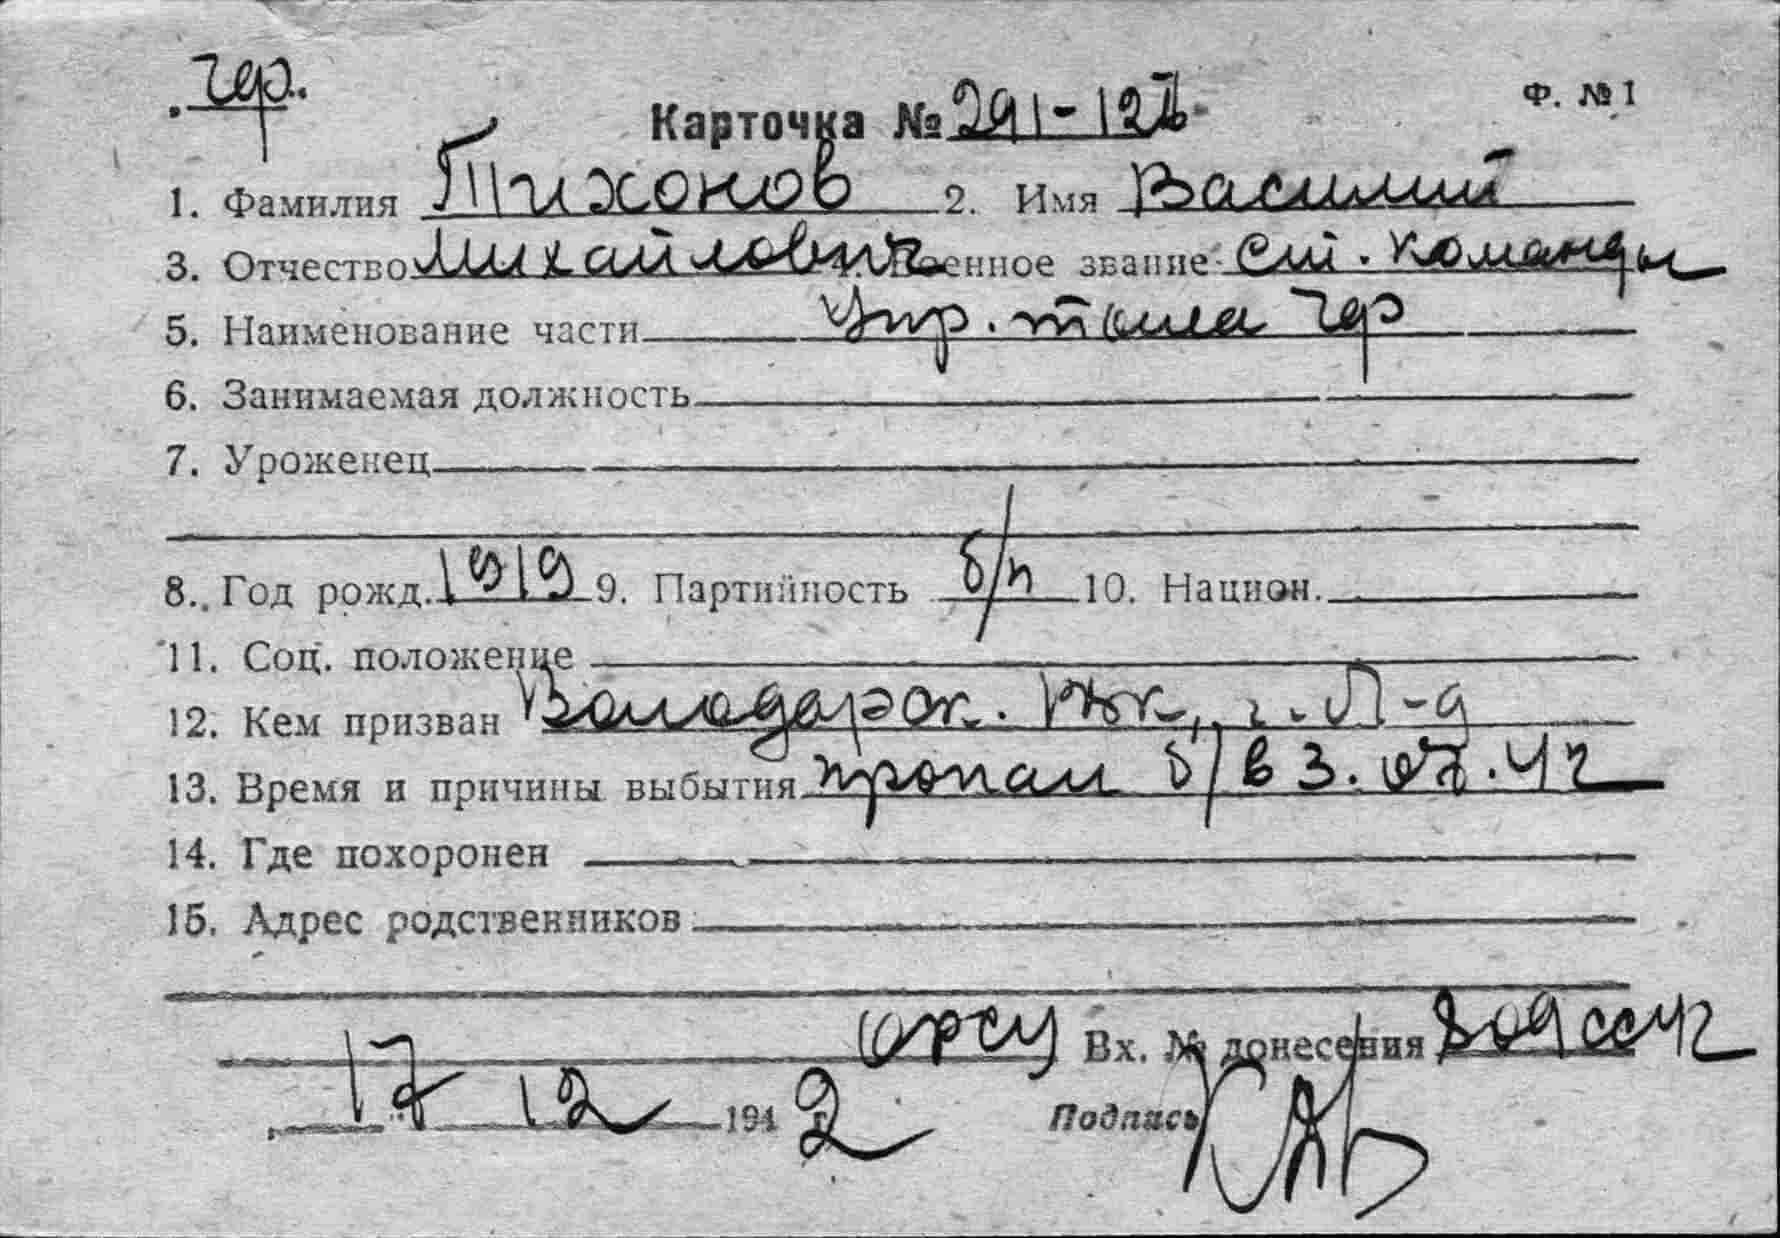 Чер.
Ф. № 1
Карточка № 291-12
1. Фамилия Тихонов 2. Имя Василий
3. Отчество Михайлович 4. Военное звание Ст. команды
5. Наименование части Упр. тыла Чф
6. Занимаемая должность
7. Уроженец
8. Год рожд. 1919 9. Партийность б/п 10. Национ.
11. Соц. положение
12. Кем призван Володарск. РВК, г. Л-д
13. Время и причины выбытия пропал б/в 3.07.42
14. Где похоронен
15. Адрес родственников
орсу Вх. № донесения 809сс42
17 12 1942 г. Подпись